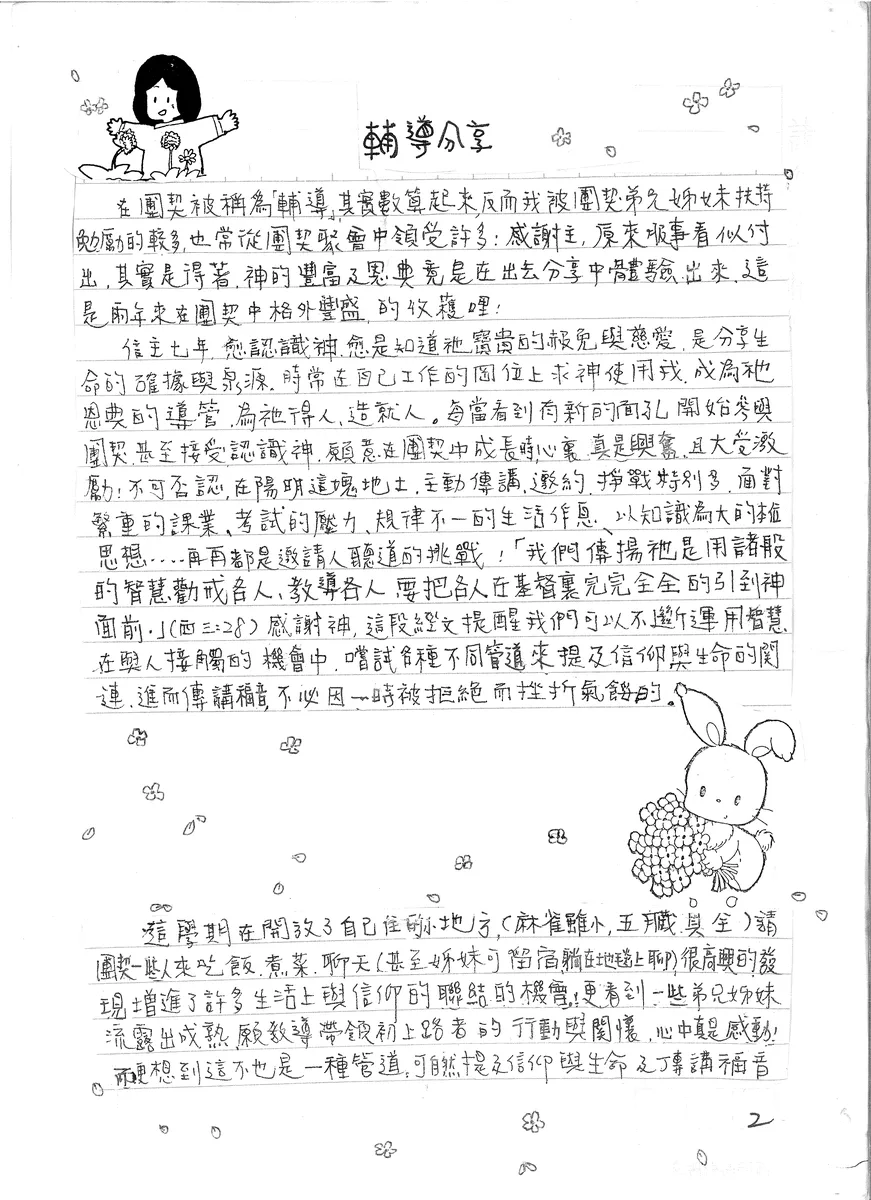 輔導分享
在團契被稱為「輔導」,其實數算起來,反而我被團契弟兄姊妹扶持
勉勵的較多,也常從團契聚會中領受許多;感謝主,原來服事看似付
出,其實是得著,神的豐富及恩典竟是在出去分享中體驗出來,這
是兩年來在團契中格外豐盛,的收穫哩!
信主七年,愈認識神,愈是知道祂寶貴的赦免與慈愛,是分享生
命的確據與泉源.時常在自己工作的崗位上求神使用我,成為祂
恩典的導管,為祂得人,造就人。每當看到有新的面孔開始參與
團契,甚至接受,認識神,願意在團契中成長時,心裏真是興奮,且大受激
勵!不可否認,在陽明這塊地土,主動傳講,邀約,掙戰特別多,面對
繁重的課業、考試的壓力、規律不一的生活作息、以知識為大的
思想....再再都是邀請人聽道的挑戰!「我們傳揚祂是用諸般
的智慧勸戒各人、教導各人 要把各人在基督裏完完全全的引到神
面前.」(西三:28)感謝神,這段經文提醒我們可以不斷運用智慧,
在與人接觸的機會中,嚐試各種不同管道來提及信仰與生命的關
連,進而傳講福音,不必因一時被拒絕而挫折氣餒的.
這學期在開放了自己住的小地方,(麻雀雖小,五臟俱全)請
團契一些人來吃飯.煮菜.聊天(甚至姊妹可留宿躺在地毯上聊),很高興的發
現增進了許多生活上與信仰的聯結的機會,更看到一些弟兄姊妹
流露出成熟,願教導帶領初上路者的行動與關懷,心中真是感動!
而更想到這不也是一種管道,可自然提及信仰與生命及傳講福音
2